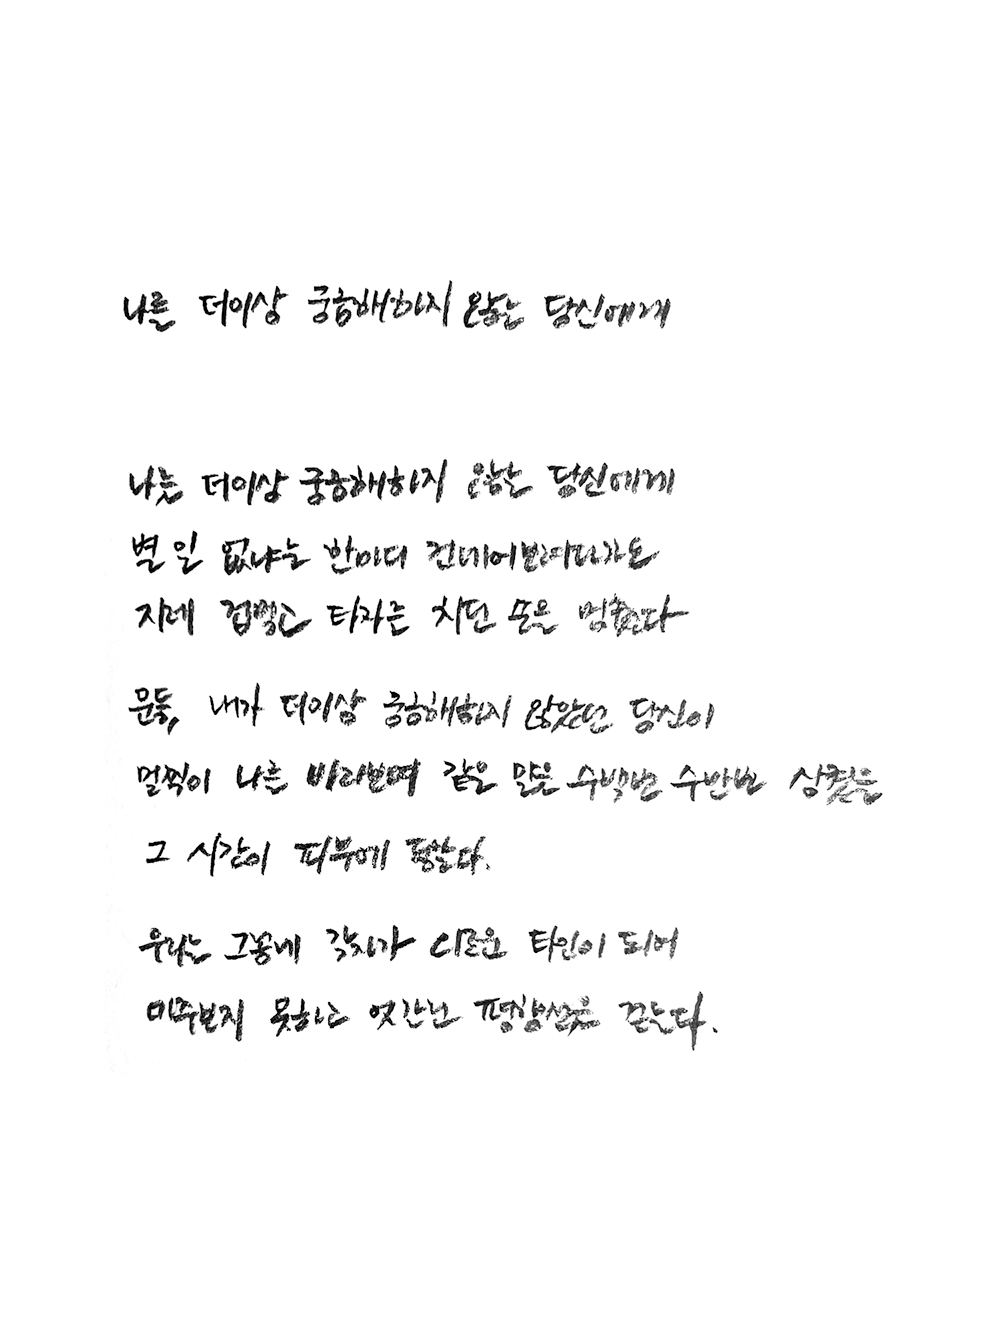 나를 더이상 궁금해하지 않는 당신에게
나를 더이상 궁금해하지 않는 당신에게
별 일 없냐는 한마디 건네어보려다가도
지레 겁먹고 타자를 치던 손을 멈춘다
문득, 내가 더이상 궁금해하지 않았던 당신이
멀찍이 나를 바라보며 같은 말을 수백번 수만번 삼켰을
그 시간이 피부에 닿는다.
우리는 그렇게 각자가 다른 타인이 되어
마주보지 못하고 엇갈린 평행선을 긋는다.